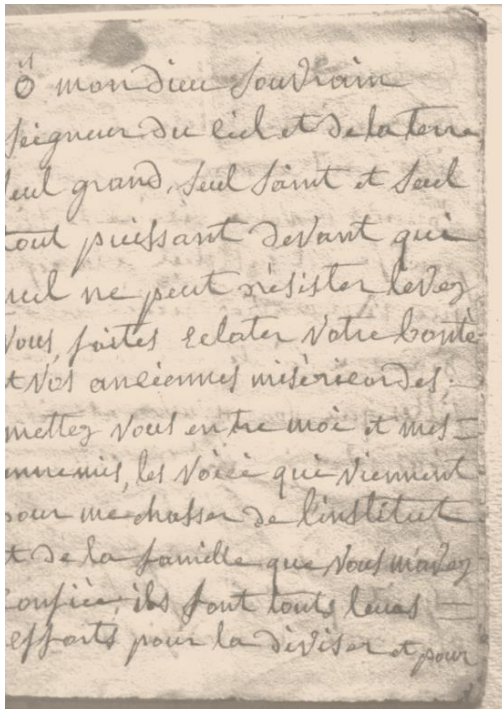 Ô mon dieu Souvrain
seigneur du ciel et de la terre
seul grand, seul saint et seul
tout puissant devant qui
nul ne peut résister levez
vous, faites eclater votre bonté
et vos anciennes miséricordes,
mettez vous entre moi et mes =
ennemis, les voici qui viennent
pour me chasser de l'institut
et de la famille que vous m'avez
confiée, ils font touts leurs =
efforts pour la diviser et pour